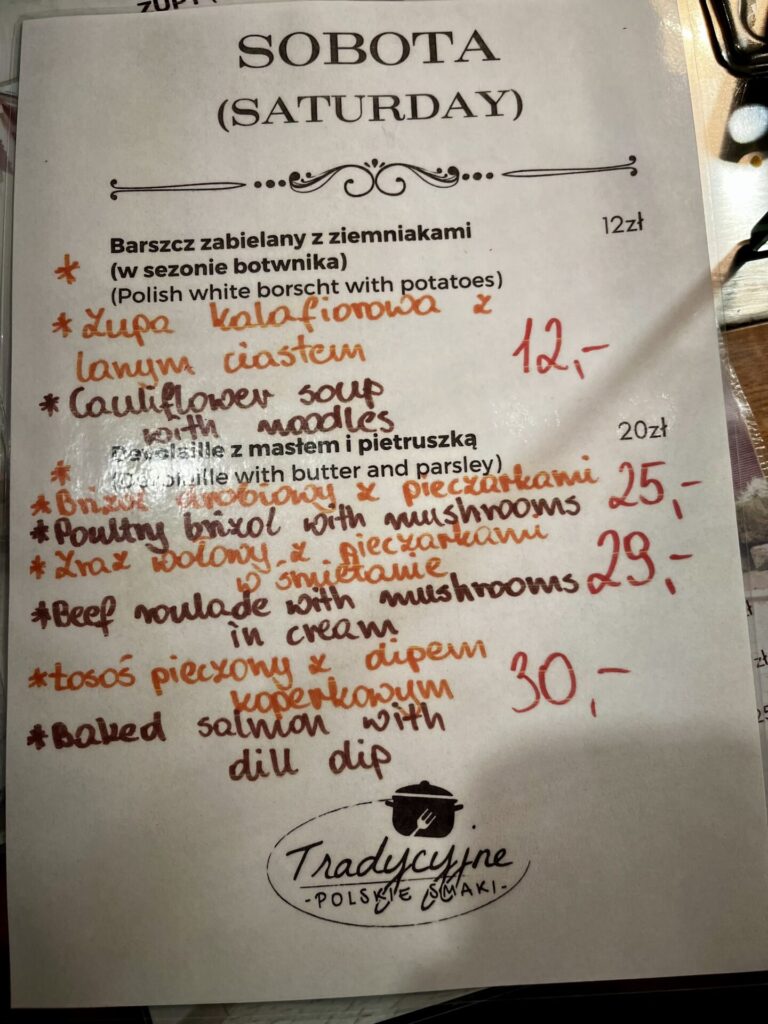 SOBOTA
(SATURDAY)
Barszcz zabielany z ziemniakami 12zł
(w sezonie botwnika)
(Polish white borscht with potatoes)
* Zupa kalafiorowa z
lanym ciastem 12,-
* Cauliflower soup
with noodles
z masłem i pietruszką 20zł
with butter and parsley)
* Brizol drobiowy z pieczarkami 25,-
* Poultry brizol with mushrooms
* Zraz wołowy z pieczarkami
w śmietanie 29,-
* Beef roulade with mushrooms
in cream
* Łosoś pieczony z dipem
koperkowym 30,-
* Baked salmon with
dill dip
Tradycyjne
-POLSKIE SMAKI-